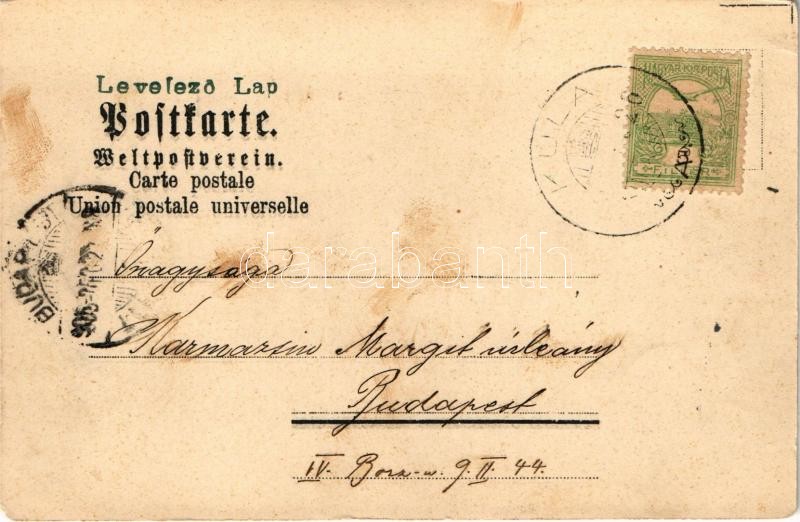 Levelező Lap
Postkarte.
Weltpostverein.
Carte postale
Union postale universelle
KULA
MAGYAR KIR. POSTA
FILLÉR
BUDAPEST
905
darabanth
Őnagysága
Karmarsin Margit úrleány
Budapest
IV. 9. II. 44.